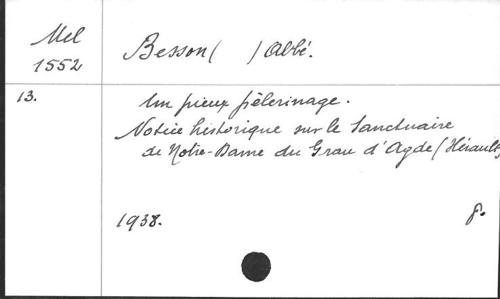 Mel
1552
Besson (     ) Abbé.
13.
Un pieux pèlerinage.
Notice historique sur le Sanctuaire
de Notre-Dame du Grau d'Agde (Hérault)
1938.
8.